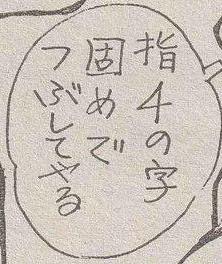 指4の字
固めで
つぶしてやる